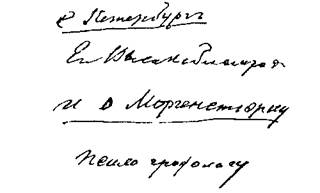 С Петербургъ
Е Высокоблагород
И Ѳ Моргенстиерну
психо графологу